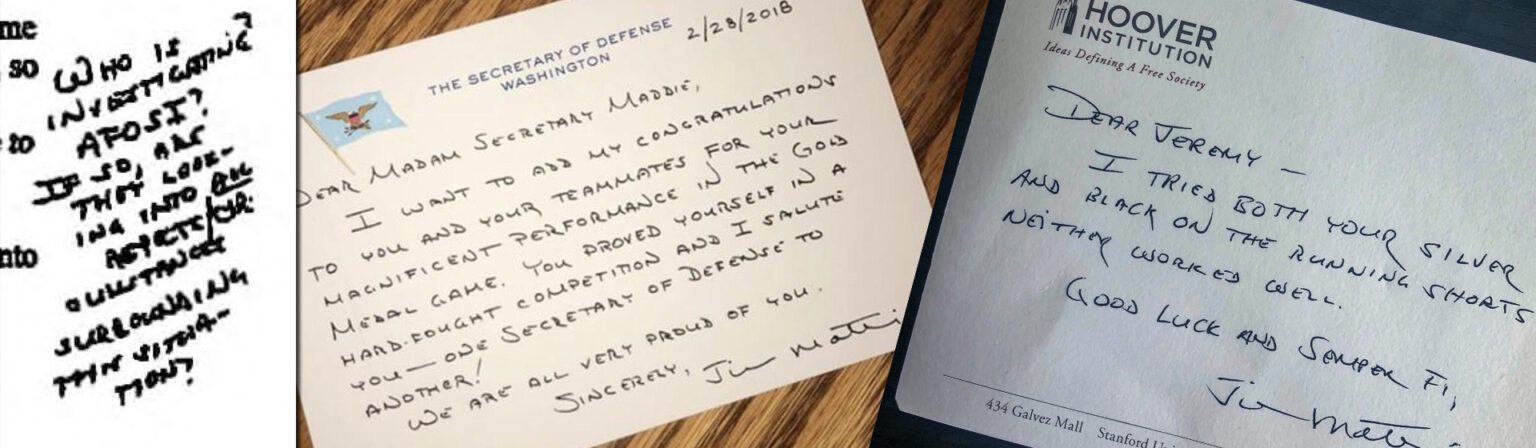 me
so
to
nto
WHO IS
INVESTIGATING?
AFOSI?
IF SO, ARE
THEY LOOK-
ING INTO ALL
ASPECTS/CIR-
CUMSTANCES
SURROUNDING
THIS SITUA-
TION?
THE SECRETARY OF DEFENSE
WASHINGTON
2/28/2018
DEAR MADAM SECRETARY MADDIE,
I WANT TO ADD MY CONGRATULATIONS
TO YOU AND YOUR TEAMMATES FOR YOUR
MAGNIFICENT PERFORMANCE IN THE GOLD
MEDAL GAME. YOU PROVED YOURSELF IN A
HARD-FOUGHT COMPETITION AND I SALUTE
YOU — ONE SECRETARY OF DEFENSE TO
ANOTHER!
WE ARE ALL VERY PROUD OF YOU.
SINCERELY, Jim Mattis
HOOVER
INSTITUTION
Ideas Defining A Free Society
DEAR JEREMY —
I TRIED BOTH YOUR SILVER
AND BLACK ON THE RUNNING SHORTS
NEITHER WORKED WELL.
GOOD LUCK AND SEMPER FI,
Jim Matti
434 Galvez Mall Stanford Uni